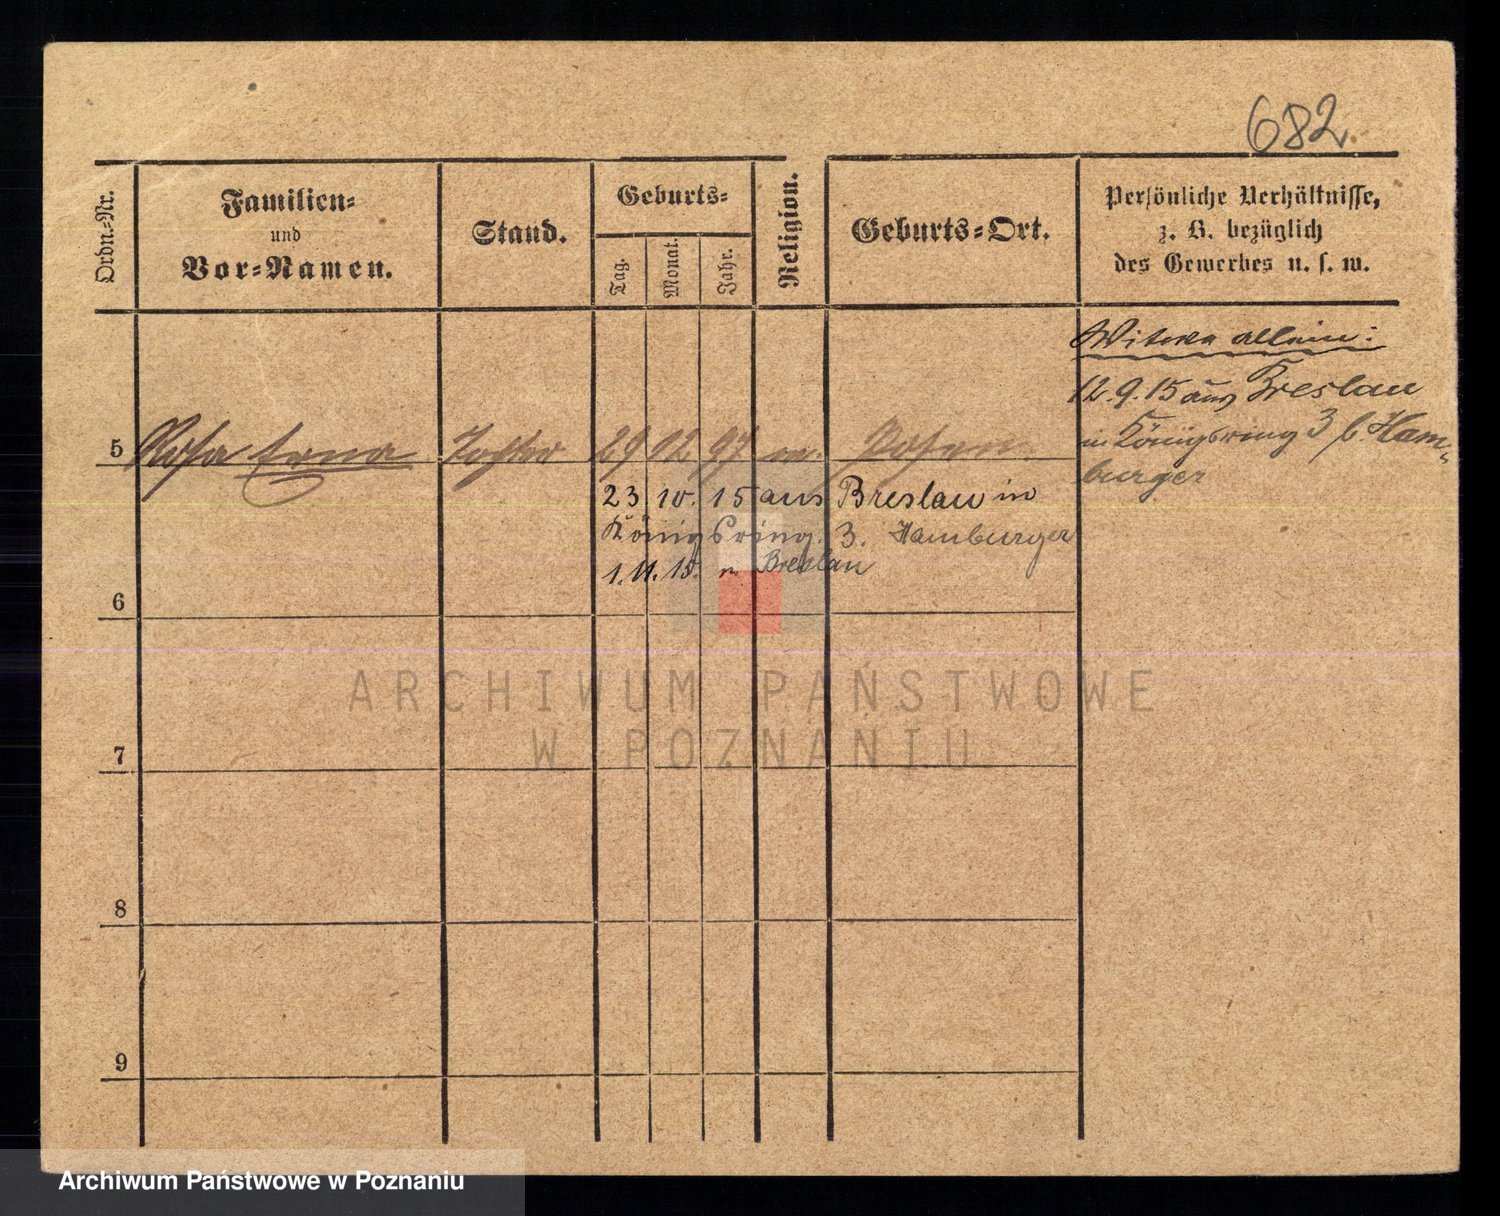 682.
Ordn.-Nr.
Familien-
und
Vor-Namen.
Stand.
Geburts-
Tag.
Monat.
Jahr.
Religion.
Geburts-Ort.
Persönliche Verhältnisse,
z. B. bezüglich
des Gewerbes u. s. w.
Witwe allein:
12.9.15 aus Breslau
in Königsring 3 b. Ham-
burger
5 Rosa Erna Tochter 29 12 97 m. Posen.
23 10. 15 aus Breslau in
Königsring. 3. Hamburger
1.11.15. n. Breslau
6
7
8
9
ARCHIWUM PAŃSTWOWE
W POZNANIU
Archiwum Państwowe w Poznaniu